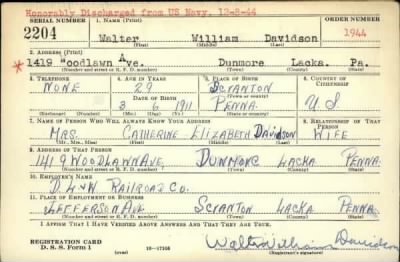 Honorably Discharged from US Navy. 12-8-44
SERIAL NUMBER 1. NAME (Print) ORDER NUMBER
2204 Walter William Davidson 1944
(First) (Middle) (Last)
2. ADDRESS (Print)
* 1419 Woodlawn Ave. Dunmore Lacka. Pa.
(Number and street or R. F. D. number) (Town) (County) (State)
3. TELEPHONE 4. AGE IN YEARS 5. PLACE OF BIRTH 6. COUNTRY OF CITIZENSHIP
NONE 29 SCRANTON
DATE OF BIRTH (Town or county)
3 6 1911 PENNA. U S
(Mo.) (Day) (Yr.) (State or country)
7. NAME OF PERSON WHO WILL ALWAYS KNOW YOUR ADDRESS 8. RELATIONSHIP OF THAT PERSON
MRS. CATHERINE ELIZABETH DAVIDSON WIFE
(Mr., Mrs., Miss) (First) (Middle) (Last)
9. ADDRESS OF THAT PERSON
1419 WOODLAWN AVE. DUNMORE LACKA PENNA.
(Number and street or R. F. D. number) (Town) (County) (State)
10. EMPLOYER'S NAME
D. L & W RAILROAD CO.
11. PLACE OF EMPLOYMENT OR BUSINESS
JEFFERSON AVE. SCRANTON LACKA PENNA
(Number and street or R. F. D. number) (Town) (County) (State)
I AFFIRM THAT I HAVE VERIFIED ABOVE ANSWERS AND THAT THEY ARE TRUE.
REGISTRATION CARD
D. S. S. Form 1 (over) 16-17105 Walter William Davidson
(Registrant's signature)